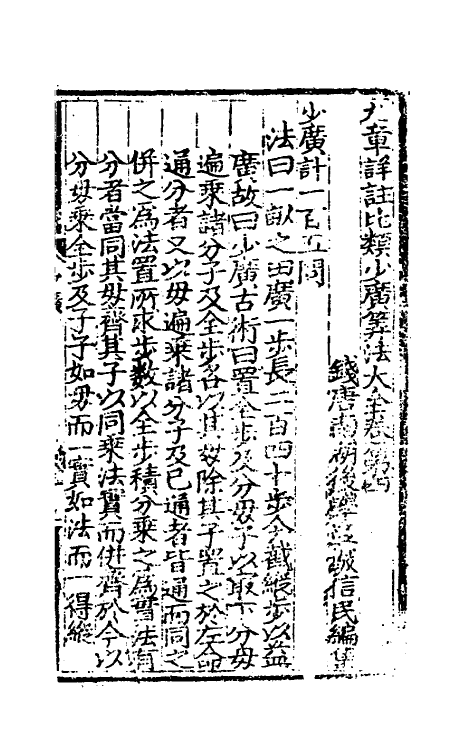 九章詳註比類少廣算法大全卷第四
錢唐南湖後學吳敬信民編集
少廣計一百五問
法曰一畝之田廣一步長二百四十步今截縱步以益
廣故曰少廣古術曰置全步及分母子以最下分母
遍乘諸分子及全步各以其母除其子置之於左命
通分者又以母遍乘諸分子及已通者皆通而同之
併之為法置所求步數以全步積分乘之為實法有
分者當同其母齊其子以同乘法實而併齊於今以
分母乘全步及子子如母而一實如法而一得縱